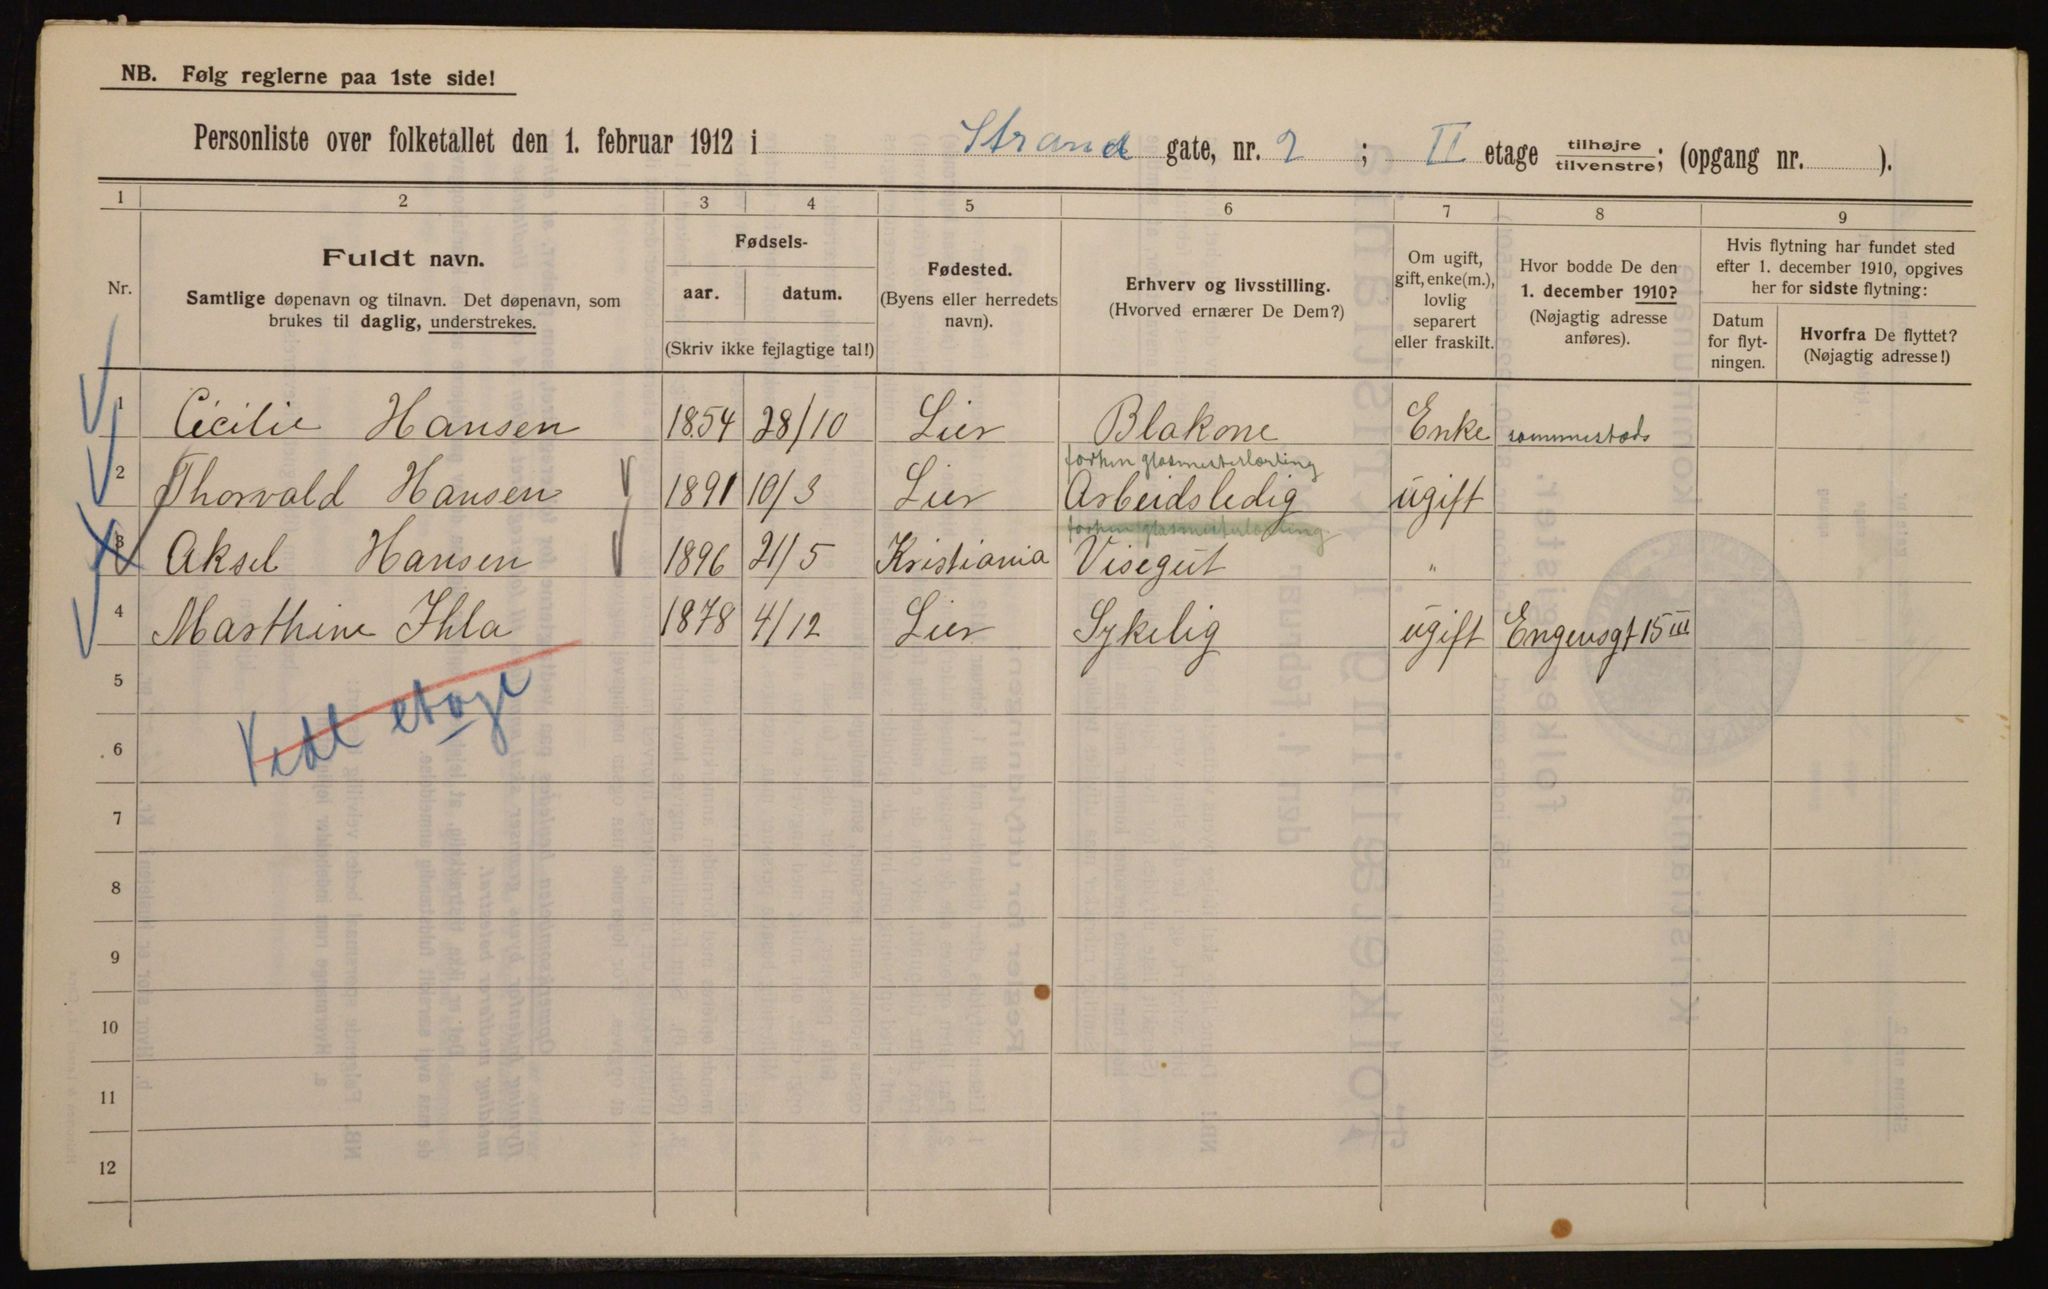 NB. Følg reglerne paa 1ste side!
Personliste over folketallet den 1. februar 1912 i Strand gate, nr. 2 ; II etage tilhøjre/tilvenstre; (opgang nr. ).
1 2 3 4 5 6 7 8 9
Nr.
Fuldt navn.
Samtlige døpenavn og tilnavn. Det døpenavn, som
brukes til daglig, understrekes.
Fødsels-
aar. datum.
(Skriv ikke fejlagtige tal!)
Fødested.
(Byens eller herredets
navn).
Erhverv og livsstilling.
(Hvorved ernærer De Dem?)
Om ugift,
gift, enke(m.),
lovlig
separert
eller fraskilt.
Hvor bodde De den
1. december 1910?
(Nøjagtig adresse
anføres).
Hvis flytning har fundet sted
efter 1. december 1910, opgives
her for sidste flytning:
Datum
for flyt-
ningen.
Hvorfra De flyttet?
(Nøjagtig adresse!)
1 Cecilie Hansen 1854 28/10 Lier Blakone Enke sammesteds
forhen glasmesterlærling
2 Thorvald Hansen 1891 10/3 Lier Arbeidsledig ugift
forhen glasmesterlærling
3 Aksel Hansen 1896 21/5 Kristiania Visegut "
4 Marthine Ihla 1878 4/12 Lier Sykelig ugift Engensgt 15 III
5
Vedl etage
6
7
8
9
10
11
12